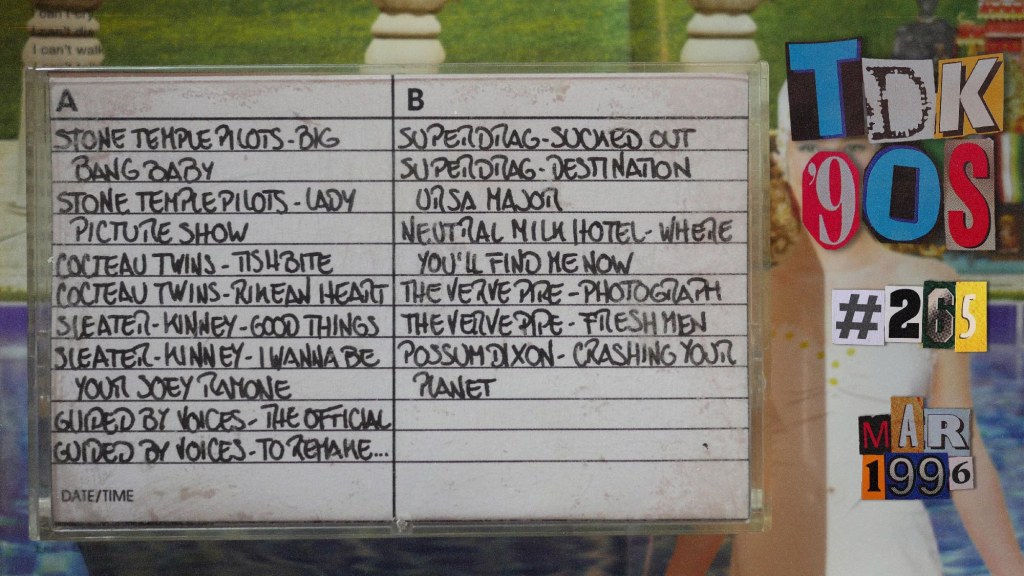 can't cry
I can't die
I can't walk
A
STONE TEMPLE PILOTS - BIG
BANG BABY
STONE TEMPLE PILOTS - LADY
PICTURE SHOW
COCTEAU TWINS - TISHBITE
COCTEAU TWINS - RILKEAN HEART
SLEATER - KINNEY - GOOD THINGS
SLEATER - KINNEY - I WANNA BE
YOUR JOEY RAMONE
GUIDED BY VOICES - THE OFFICIAL
GUIDED BY VOICES - TO REMAKE...
DATE/TIME
B
SUPERDRAG - SUCKED OUT
SUPERDRAG - DESTINATION
URSA MAJOR
NEUTRAL MILK HOTEL - WHERE
YOU'LL FIND ME NOW
THE VERVE PIPE - PHOTOGRAPH
THE VERVE PIPE - FRESHMEN
POSSUM DIXON - CRASHING YOUR
PLANET
TDK
'90S
#265
MAR
1996